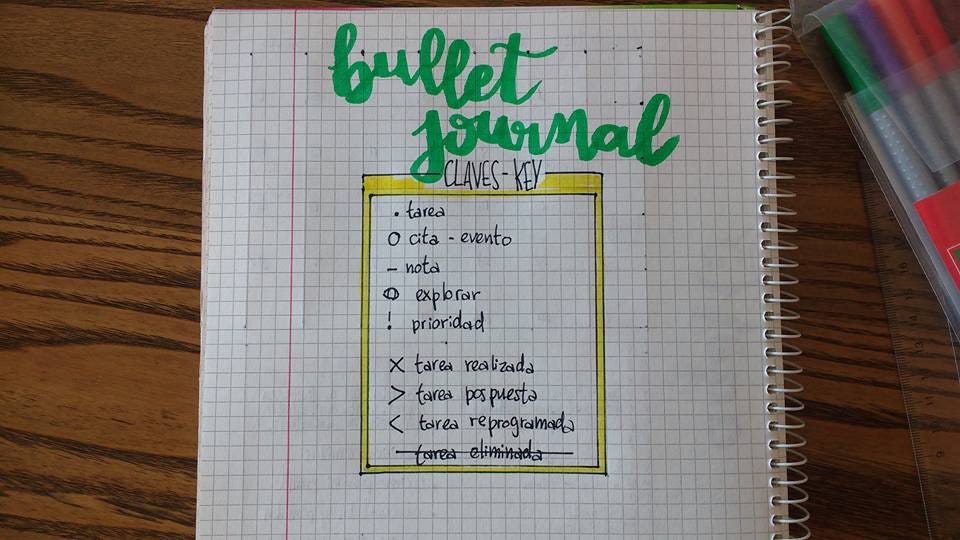 bullet
journal
CLAVES - KEY
• tarea
O cita - evento
– nota
explorar
! prioridad
X tarea realizada
> tarea pospuesta
< tarea reprogramada
tarea eliminada